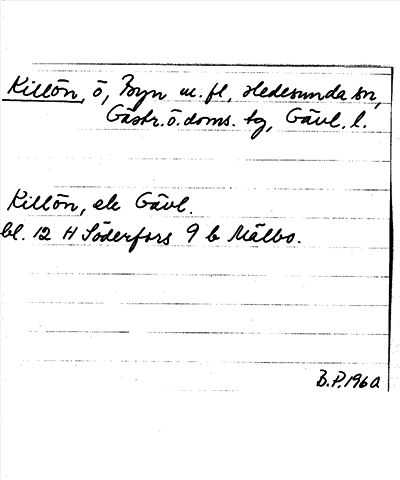 Killön, ö, Byn m.fl., Hedesunda sn,
Gästr.ö.doms.tg, Gävl.l.
Killön, ek Gävl.
bl. 12 H Söderfors 9 b Mälbo.
B.P.1960